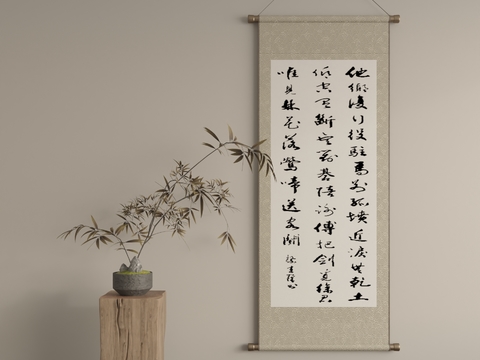 他鄉復行役駐馬別孤墳近淚無乾土
低空有斷雲對碁陪謝傅把劍覓徐君
唯見林花落鶯啼送客聞